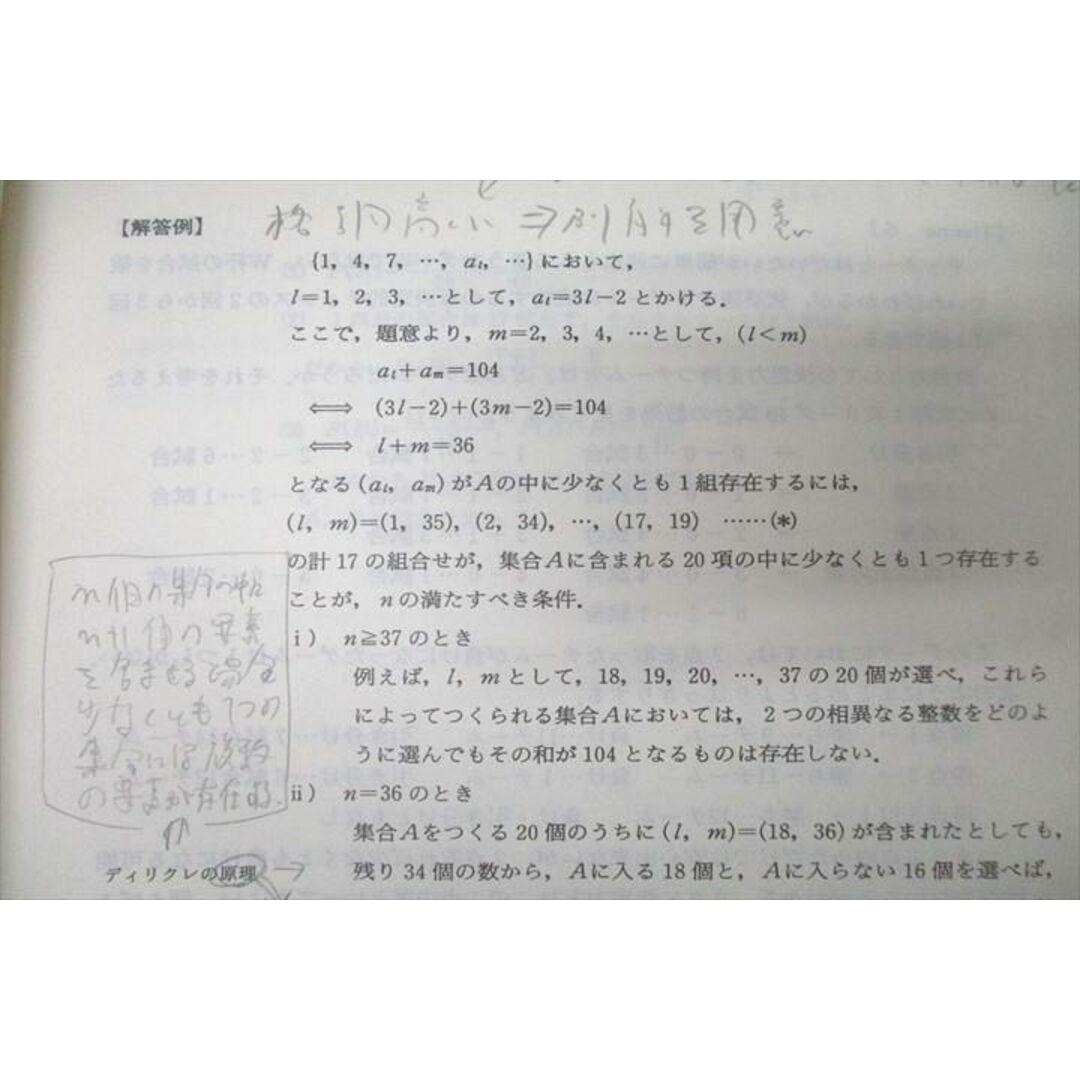 【解答例】
{1, 4, 7, …, aₗ, …}において,
l=1, 2, 3, …として, aₗ=3l−2とかける.
ここで, 題意より, m=2, 3, 4, …として, (l<m)
aₗ+aₘ=104
⟺ (3l−2)+(3m−2)=104
⟺ l+m=36
となる(aₗ, aₘ)がAの中に少なくとも1組存在するには,
(l, m)=(1, 35), (2, 34), …, (17, 19) ……(*)
の計17の組合せが, 集合Aに含まれる20項の中に少なくとも1つ存在する
ことが, nの満たすべき条件.
i) n≧37のとき
例えば, l, mとして, 18, 19, 20, …, 37の20個が選べ, これら
によってつくられる集合Aにおいては, 2つの相異なる整数をどのよ
うに選んでもその和が104となるものは存在しない.
ii) n=36のとき
集合Aをつくる20個のうちに(l, m)=(18, 36)が含まれたとしても,
残り34個の数から, Aに入る18個と, Aに入らない16個を選べば,
n個の集合の中に
n+1個の要素
を含ませる場合
少なくとも1つの
集合には複数
の要素が存在する.
ディリクレの原理 →